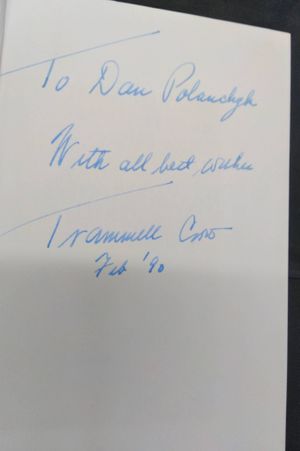 To Dan Polanchyk
With all best wishes
Trammell Crow
Feb '90